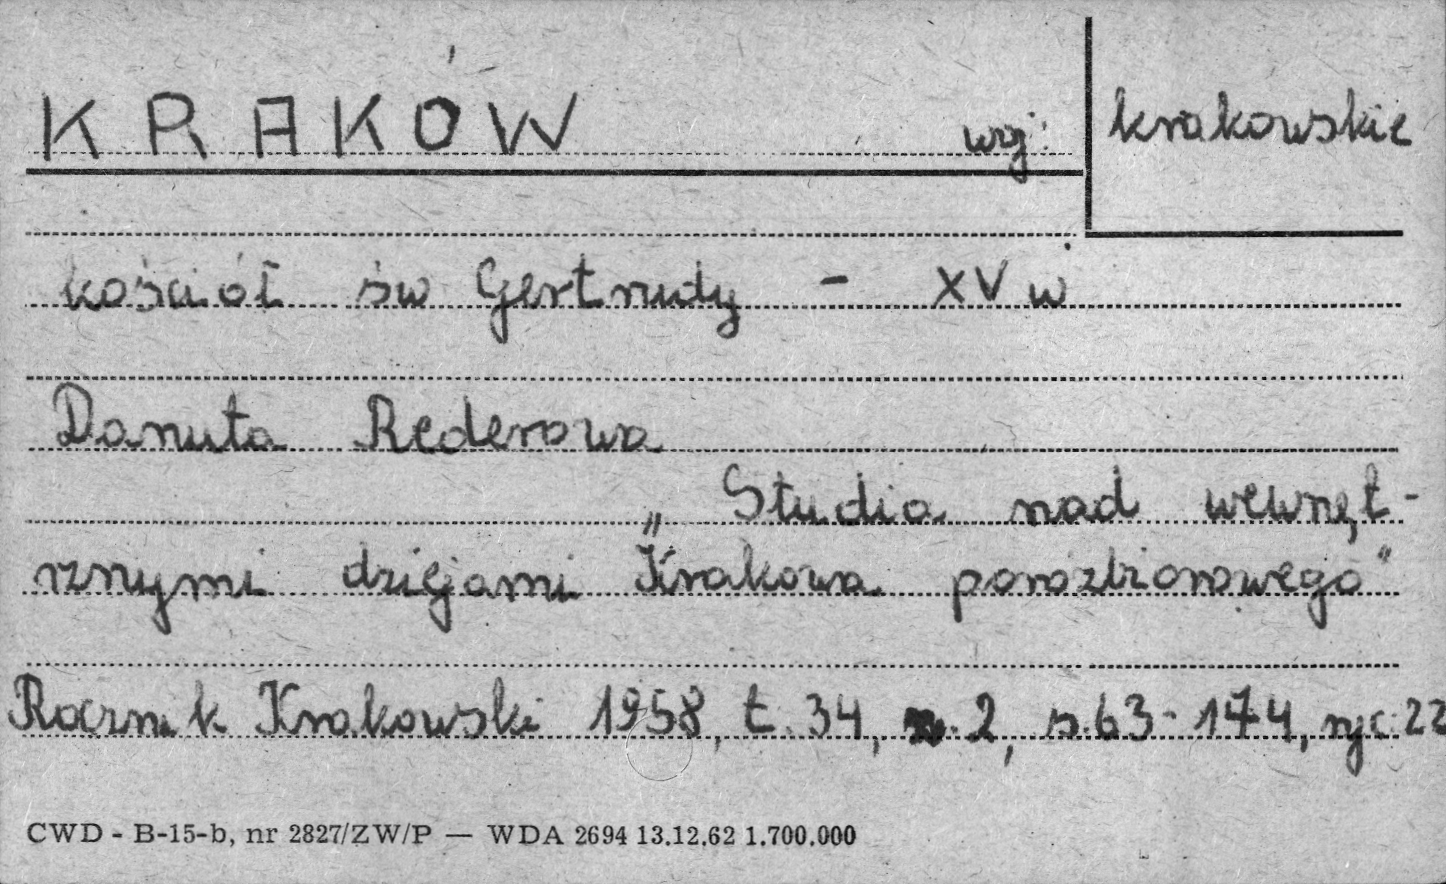 KRAKÓW woj: krakowskie
kościół św Gertrudy - XV w
Danuta Rederowa
„Studia nad wewnęt-
rznymi dziejami Krakowa porozbiorowego"
Rocznik Krakowski 1958, t. 34, z. 2, s. 63-174, ryc. 22
CWD - B-15-b, nr 2827/ZW/P — WDA 2694 13.12.62 1.700.000